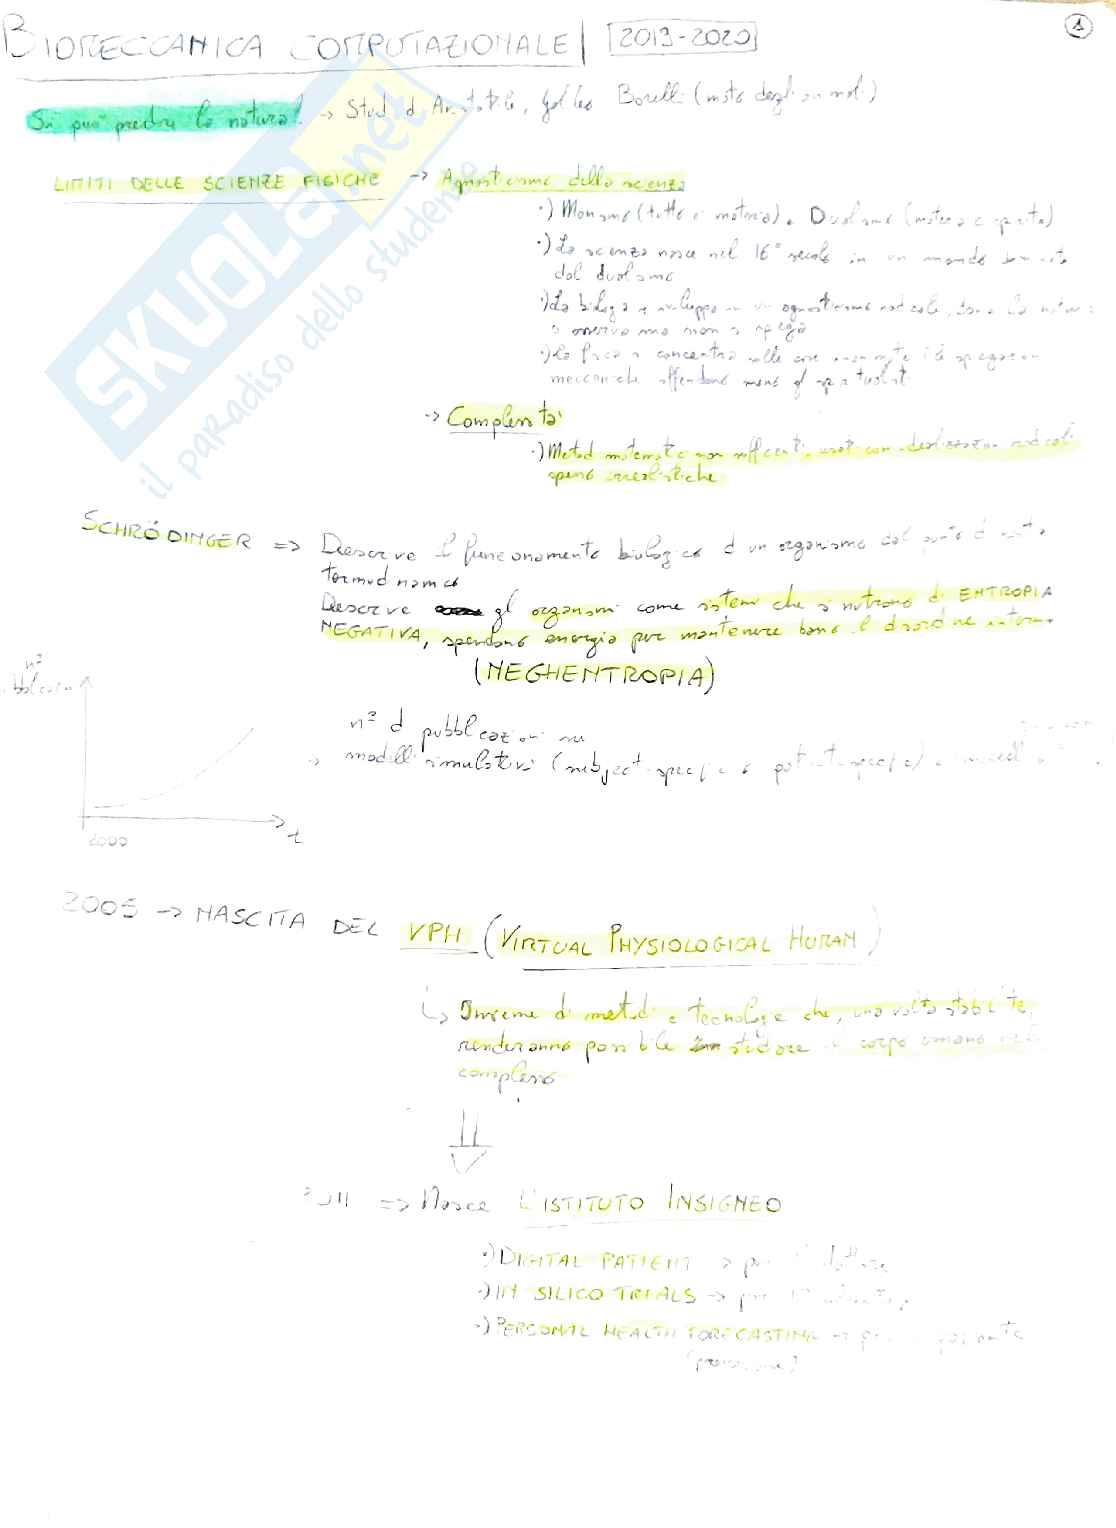 BIOMECCANICA COMPUTAZIONALE 2019-2020
1
Si può predire la natura? → Studi di Aristotele, Galileo Borelli (moto degli animali)
LIMITI DELLE SCIENZE FISICHE → Agnosticismo della scienza
·) Monismo (tutto è materia) e Dualismo (materia e spirito)
·) La scienza nasce nel 16° secolo in un mondo dominato
dal dualismo
·) La biologia si sviluppa in un agnosticismo radicale, dove la natura
si osserva ma non si spiega
·) La fisica si concentra sulle cose inanimate
meccaniche offendono meno gli spiritualisti
→ Complessità
·) Metodi matematici non sufficienti, usati con idealizzazioni radicali
spesso irrealistiche
SCHRÖDINGER => Descrive il funzionamento biologico di un organismo dal punto di vista
termodinamico
Descrive gli organismi come sistemi che si nutrono di ENTROPIA
NEGATIVA, spendono energia per mantenere basso il disordine interno
(NEGHENTROPIA)
n°
t
2000
n° di pubblicazioni su
→ modelli simulativi (subject-specific o patient-specific)
2005 → NASCITA DEL VPH (VIRTUAL PHYSIOLOGICAL HUMAN)
↳ Insieme di metodi e tecnologie che, una volta stabilite,
renderanno possibile studiare il corpo umano
complesso
=> Nasce L'ISTITUTO INSIGNEO
·) DIGITAL PATIENT → per il dottore
·) IN SILICO TRIALS → per
·) PERSONAL HEALTH FORECASTING → per il paziente
(previsione)
SKUOLA.net
il paradiso dello studente